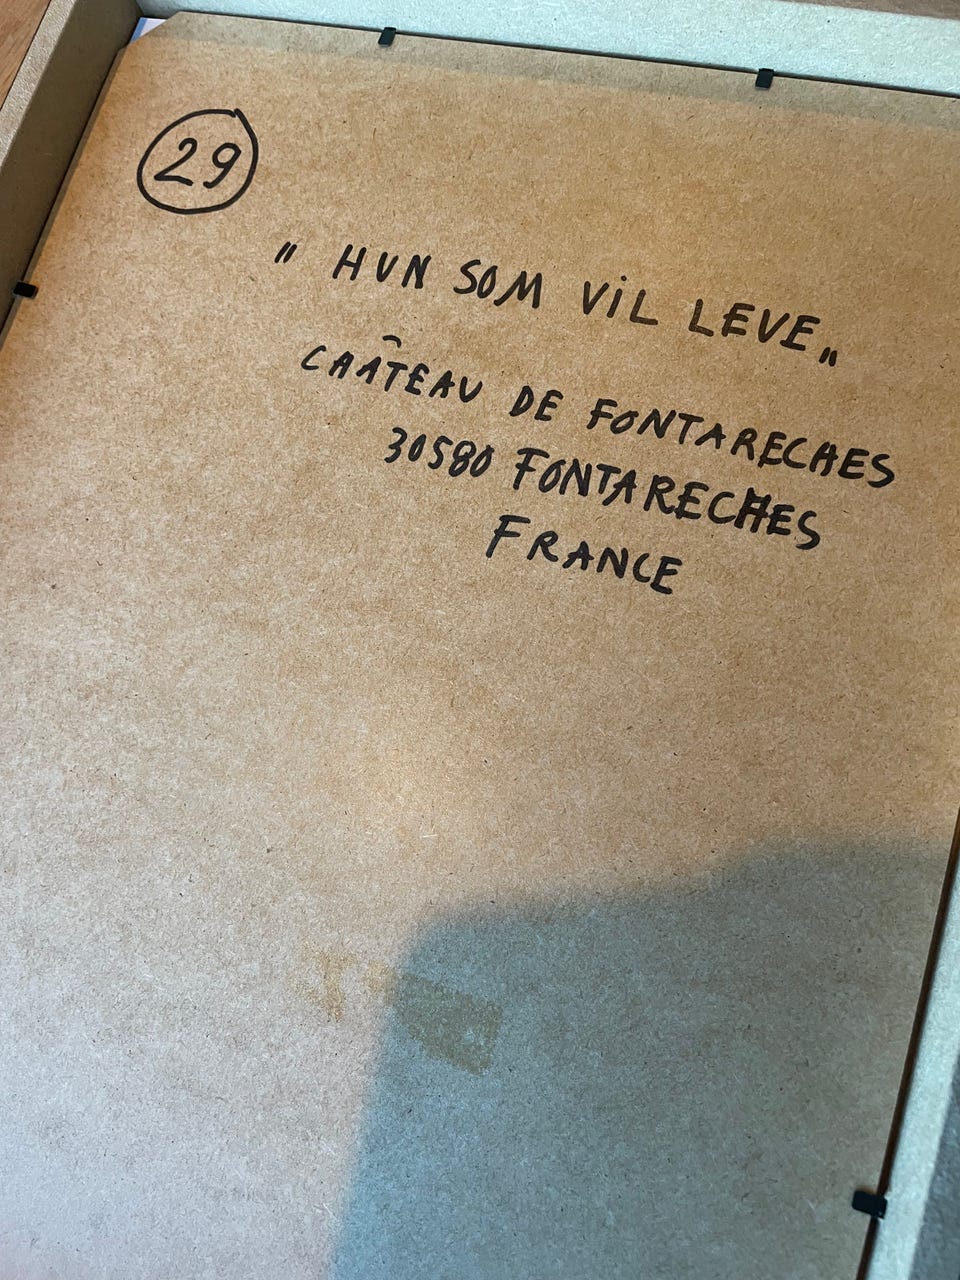 29
" HUN SOM ViL LEVE "
CHÂTEAU DE FONTARECHES
30580 FONTARECHES
FRANCE